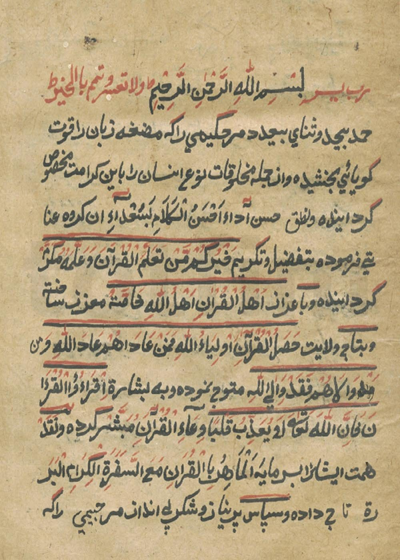 رب يسر بسم الله الرحمن الرحيم ولا تعسر وتمم بالخير
حمد بيحد وثناى بيعدد مر حكيمى را كه مضغه زبان را قوت
كويائى بخشيده و از جمله مخلوقات نوع انسان را باين كرامت مخصوص
كردانيده ونطق حسن اداء احسن الكلام بسعداء ان كروه عنا
يت فرموده بتفضيل وتكريم خيركم من تعلم القرآن وعلمه مكرم
كردانيده وباعزاز اهل القران اهل الله خاصة معزز ساخته
وبتاج ولايت حملة القرآن اولياء الله فمن عاداهم عاد الله ومن
والاهم فقد والى لله متوج نموده وبه بشارة اقرءوا القرآ
ن فان الله تعالى لا يعذب قلبا وعاء القرآن مبشر كرده ونقد
همت ايشانرا بسرمايه الماهر بالقران مع السفرة الكرام البر
رة تاج داده وسپاس پر نياز وشكر بى انداز مر رحيمى را كه